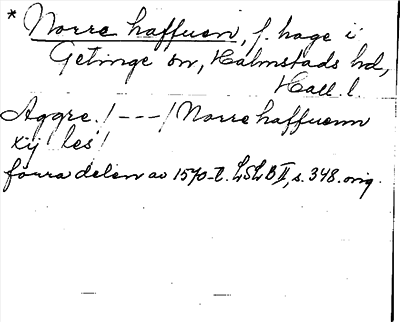 * Norre haffuen, f. hage i
Getinge sn, Halmstads hd,
Hall. l.
Aggre ! --- ! Norre haffuenn
xij les !
förra delen av 1570-t. LSLB II, s. 348. orig.